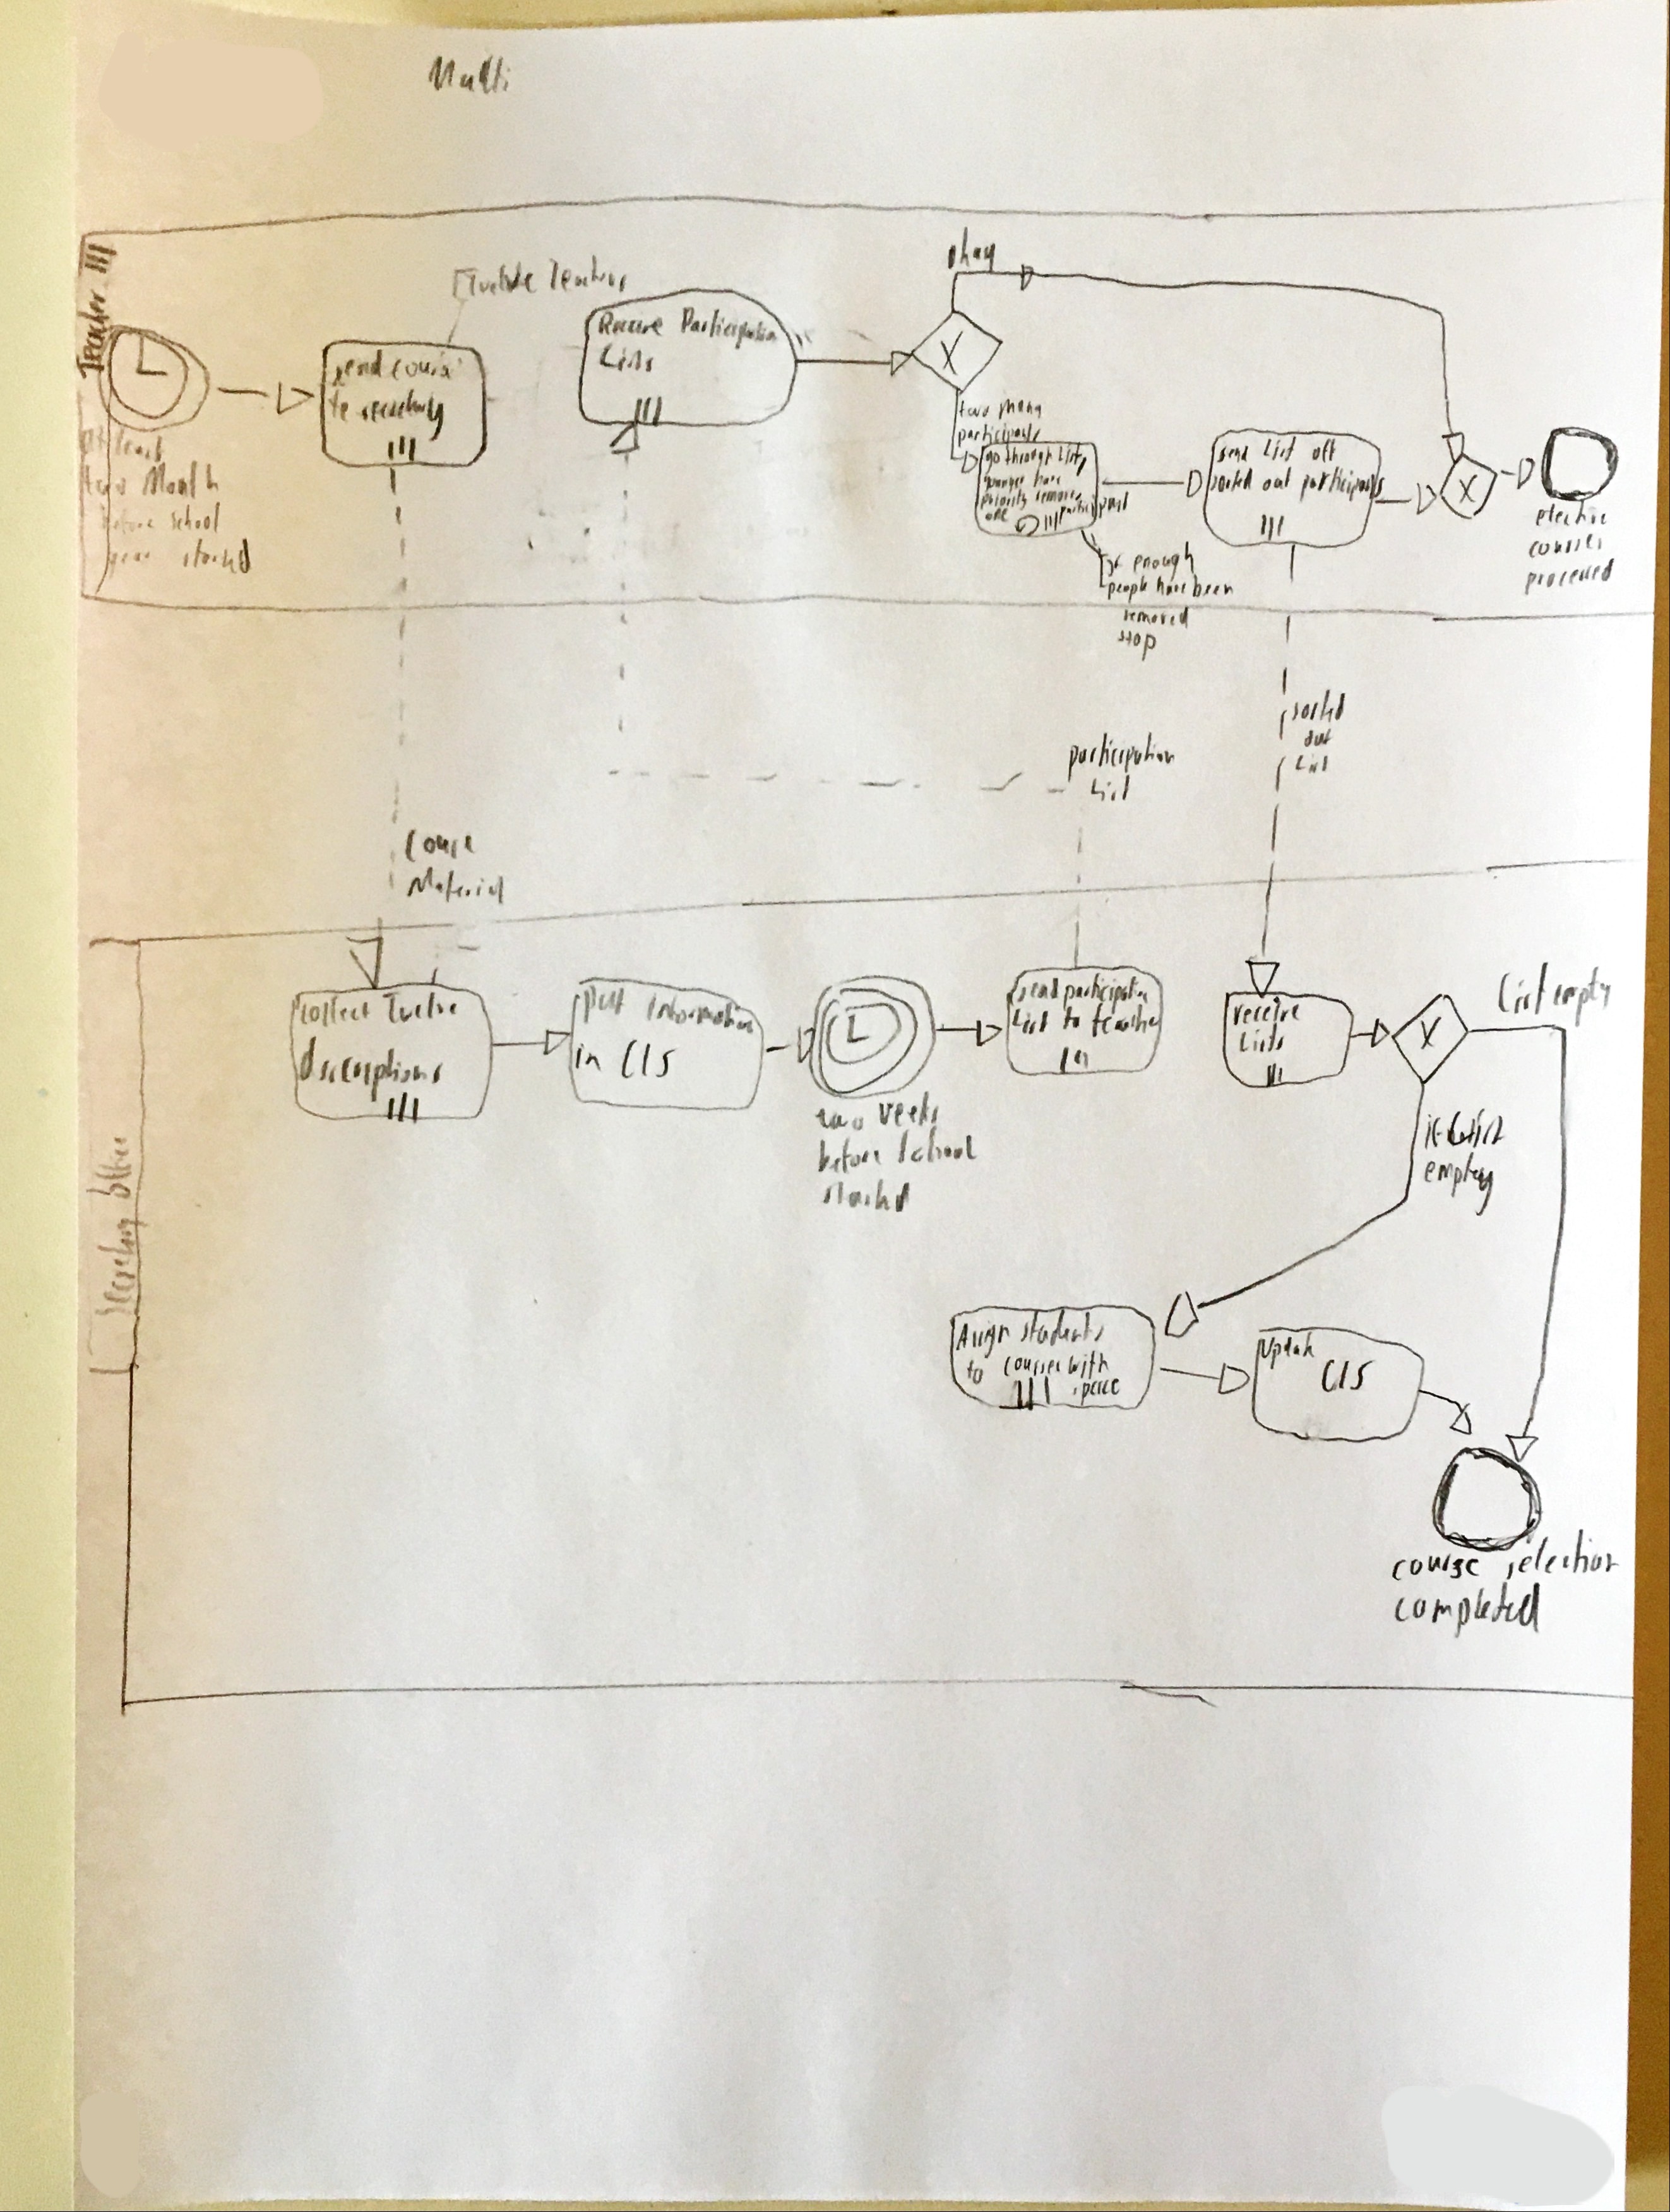 Multi
Teacher III
at least
two Month
before school
year started
send course
to secretary
Twelve Teachers
Receive Participation
Lists
okay
X
two many
participants
go through List,
younger have
priority remove
one participant
if enough
people have been
removed
stop
send List off
sorted out participants
X
elective
courses
processed
participation
List
sorted
out
List
Course
Material
Secretary Office
collect Twelve
discriptions
put Information
in CIS
two weeks
before school
started
send participation
List to teacher
receive
Lists
X
List empty
if
empty
Assign students
to courses with
space
Update
CIS
course selection
completed